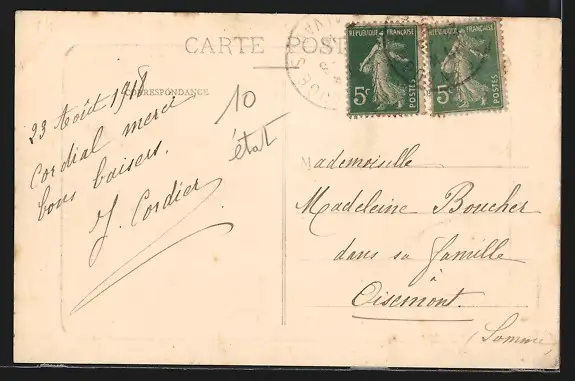 CARTE POST
CORRESPONDANCE
23 Août 1918
Cordial merci
bons baisers.
J. Cordier
10
état
REPUBLIQUE FRANÇAISE
5c
POSTES
FRANÇAISE
5
POSTES
Mademoiselle
Madeleine Boucher
dans sa famille
à
Oisemont.
(Somme)